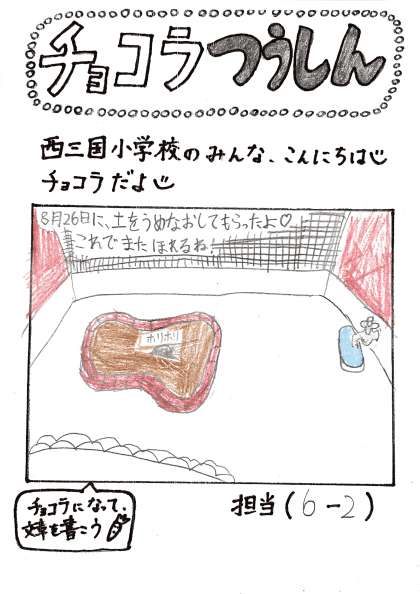 チョコラつうしん
西三国小学校のみんな、こんにちは
チョコラだよ
8月26日に、土をうめなおしてもらったよ♡
これでまたほれるね!
ホリホリ
チョコラになって、
文章を書こう
担当(6-2)